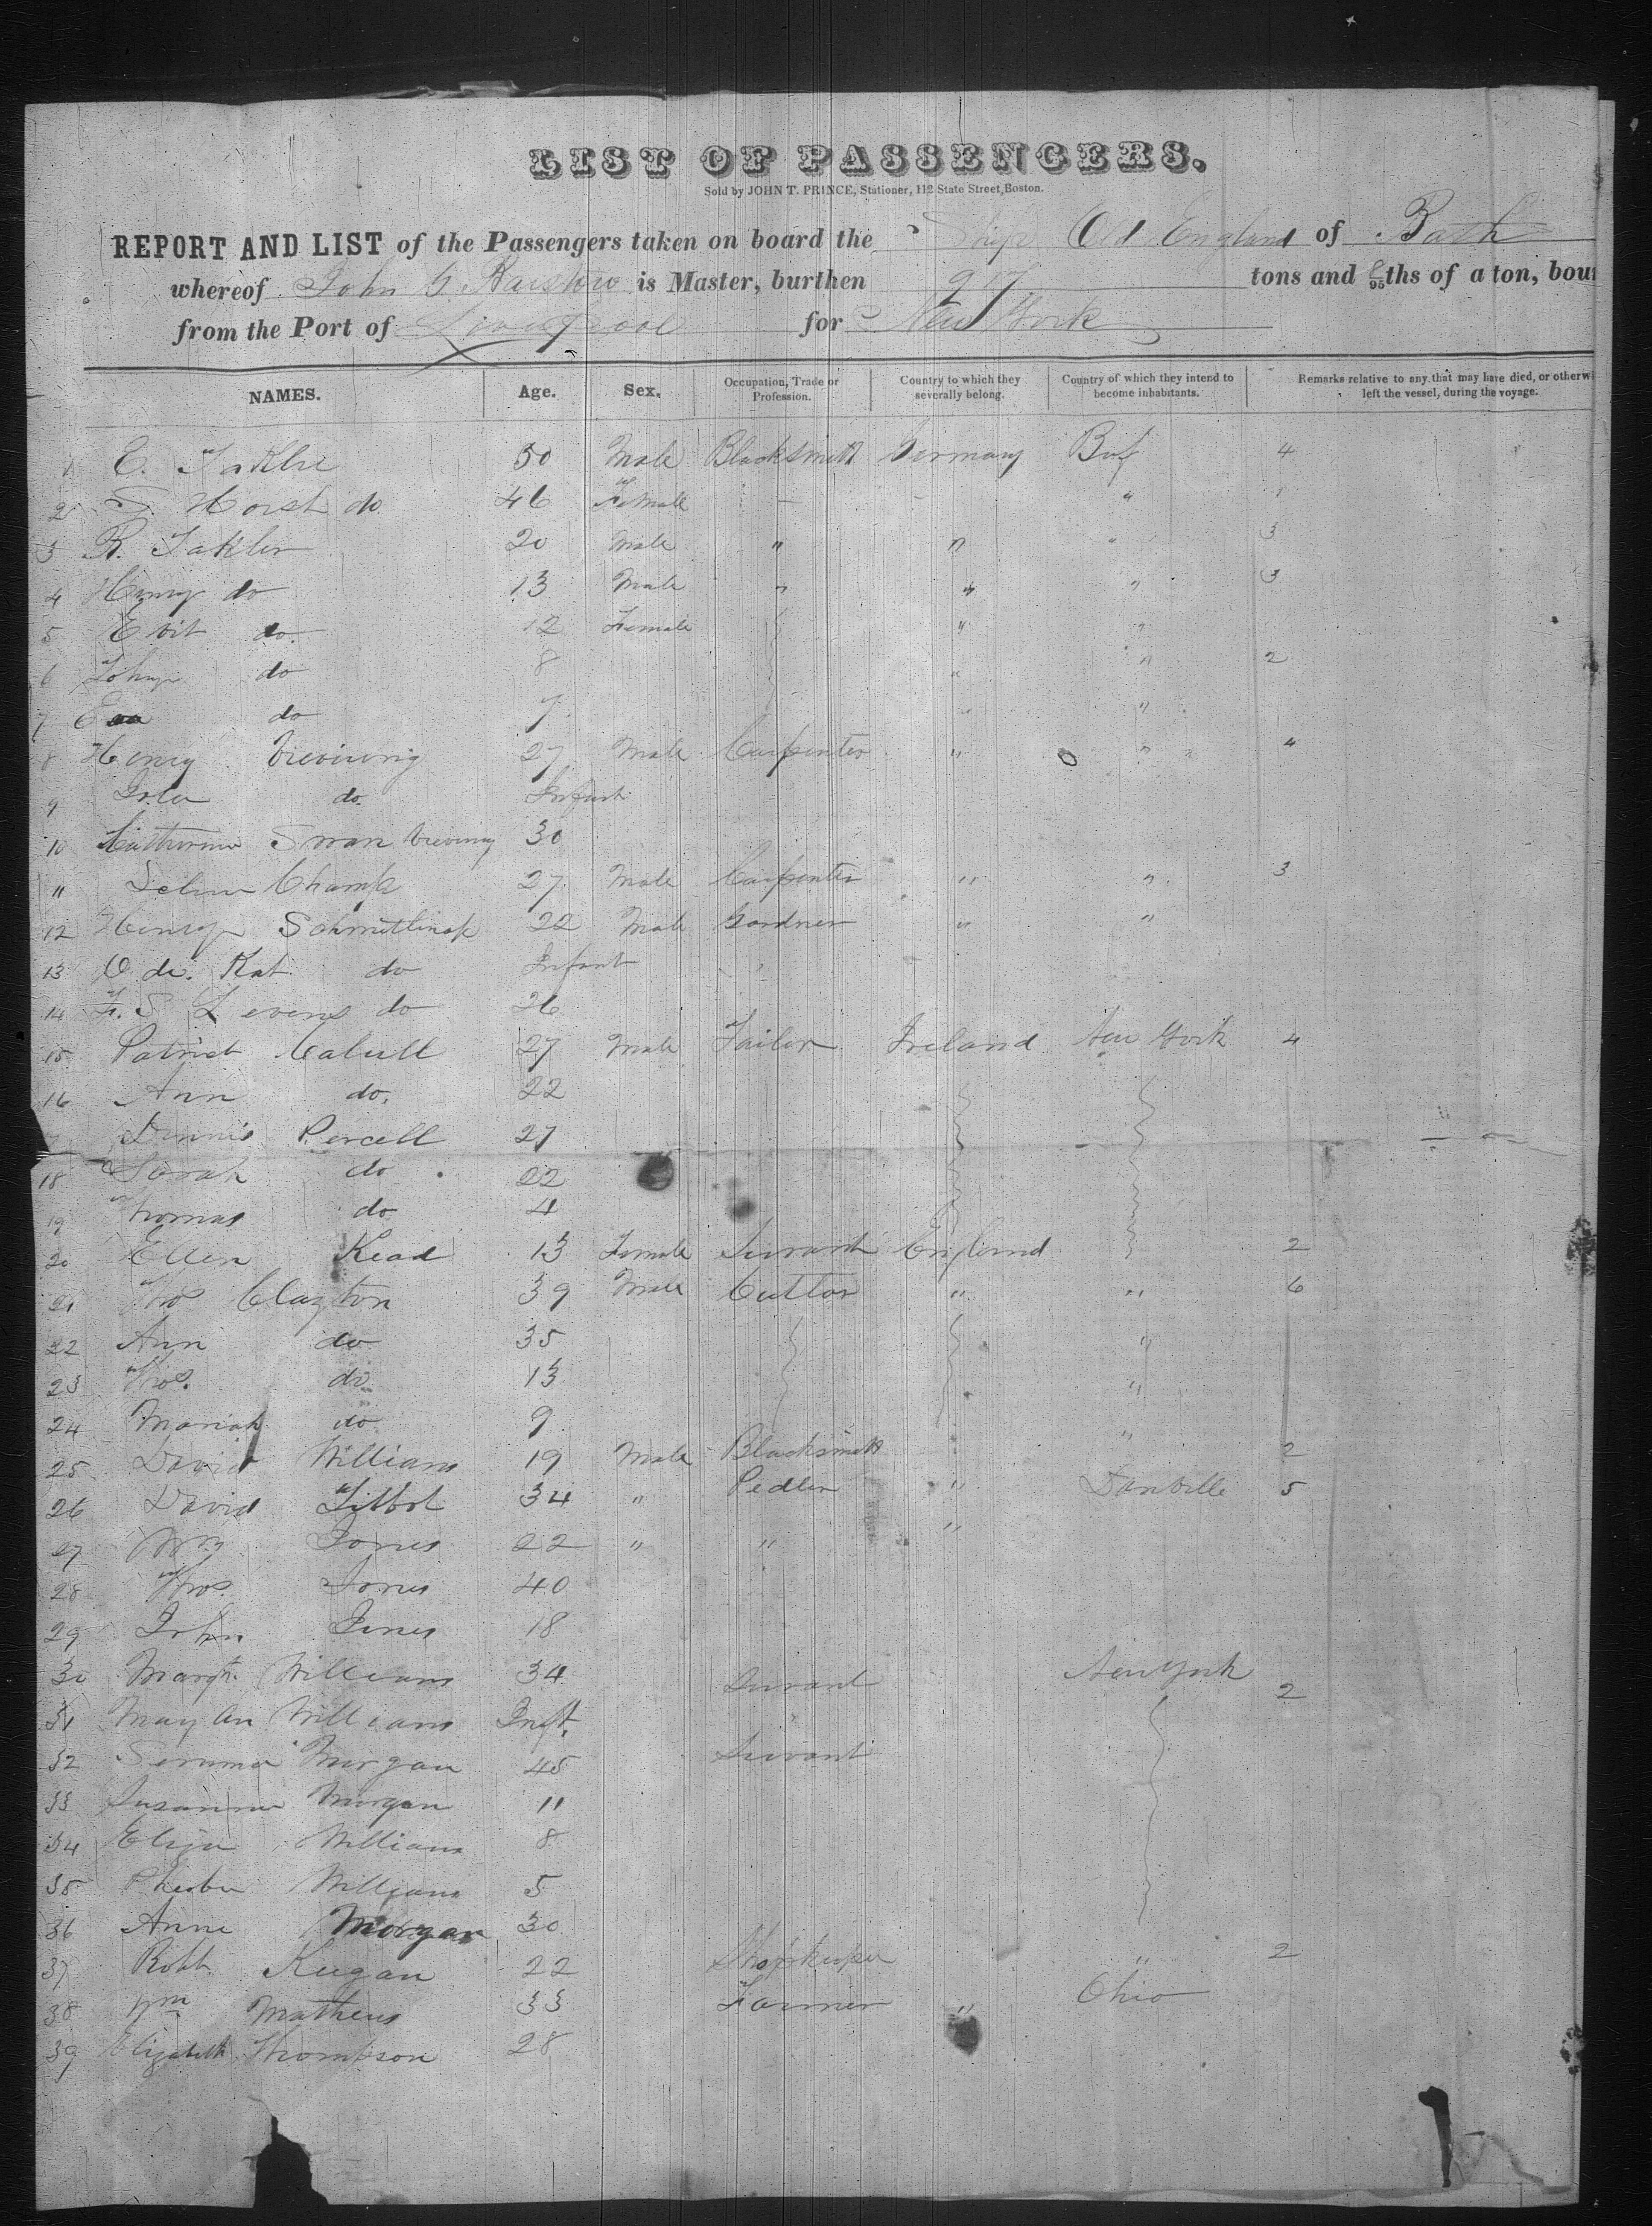 LIST OF PASSENGERS.
Sold by JOHN T. PRINCE, Stationer, 112 State Street, Boston.
REPORT AND LIST of the Passengers taken on board the Ship Old England of Bath
whereof John G. is Master, burthen 917 tons and /95ths of a ton, boun
from the Port of Liverpool for New York
NAMES. Age. Sex. Occupation, Trade or Profession. Country to which they severally belong. Country of which they intend to become inhabitants. Remarks relative to any that may have died, or otherwi left the vessel, during the voyage.
1 E. 50 Male Blacksmith Germany Buf 4
2 Horst do 46 Female — - " 1
3 R. Takler 20 Male " " " 3
4 Henry do 13 Male " " " 3
5 do. 12 Female " "
6 do 8 " " 2
7 do 7. " "
8 Henry 27 Male Carpenter " " " 4
9 do. Infant
10 Swan 30
11 27 Male Carpenter " " 3
12 Henry 22 Male Gardner " "
13 Kat do Infant
14 F. S Levens do 26
15 Patrick Cahill 27 Male Tailor Ireland New York 4
16 Ann do. 22
Dennis Percell 27
18 Sarah do 22
19 Thomas do 4
20 Ellen Kead 13 Female Servant England 2
21 Thos Clayton 39 Male Cutter " " 6
22 Ann do 35 "
23 Thos. do 13 "
24 Mariah do 9 "
25 David Williams 19 Male Blacksmith 2
26 David 34 " Pedler " Danville 5
27 Wm Jones 22 " " "
28 Thos. Jones 40
29 John Jones 18
30 Margt. Williams 34 Servant New York 2
31 Mary An Williams Inft.
32 Morgan 45 Servant
33 Susanna Morgan 11
34 Eliza Williams 8
35 Pheobe Williams 5
36 Anne Morgan 30
37 Robt. Keegan 22 Shopkeeper " 2
38 Wm Mathews 33 Farmer " Ohio
39 Elizabeth Thompson 28